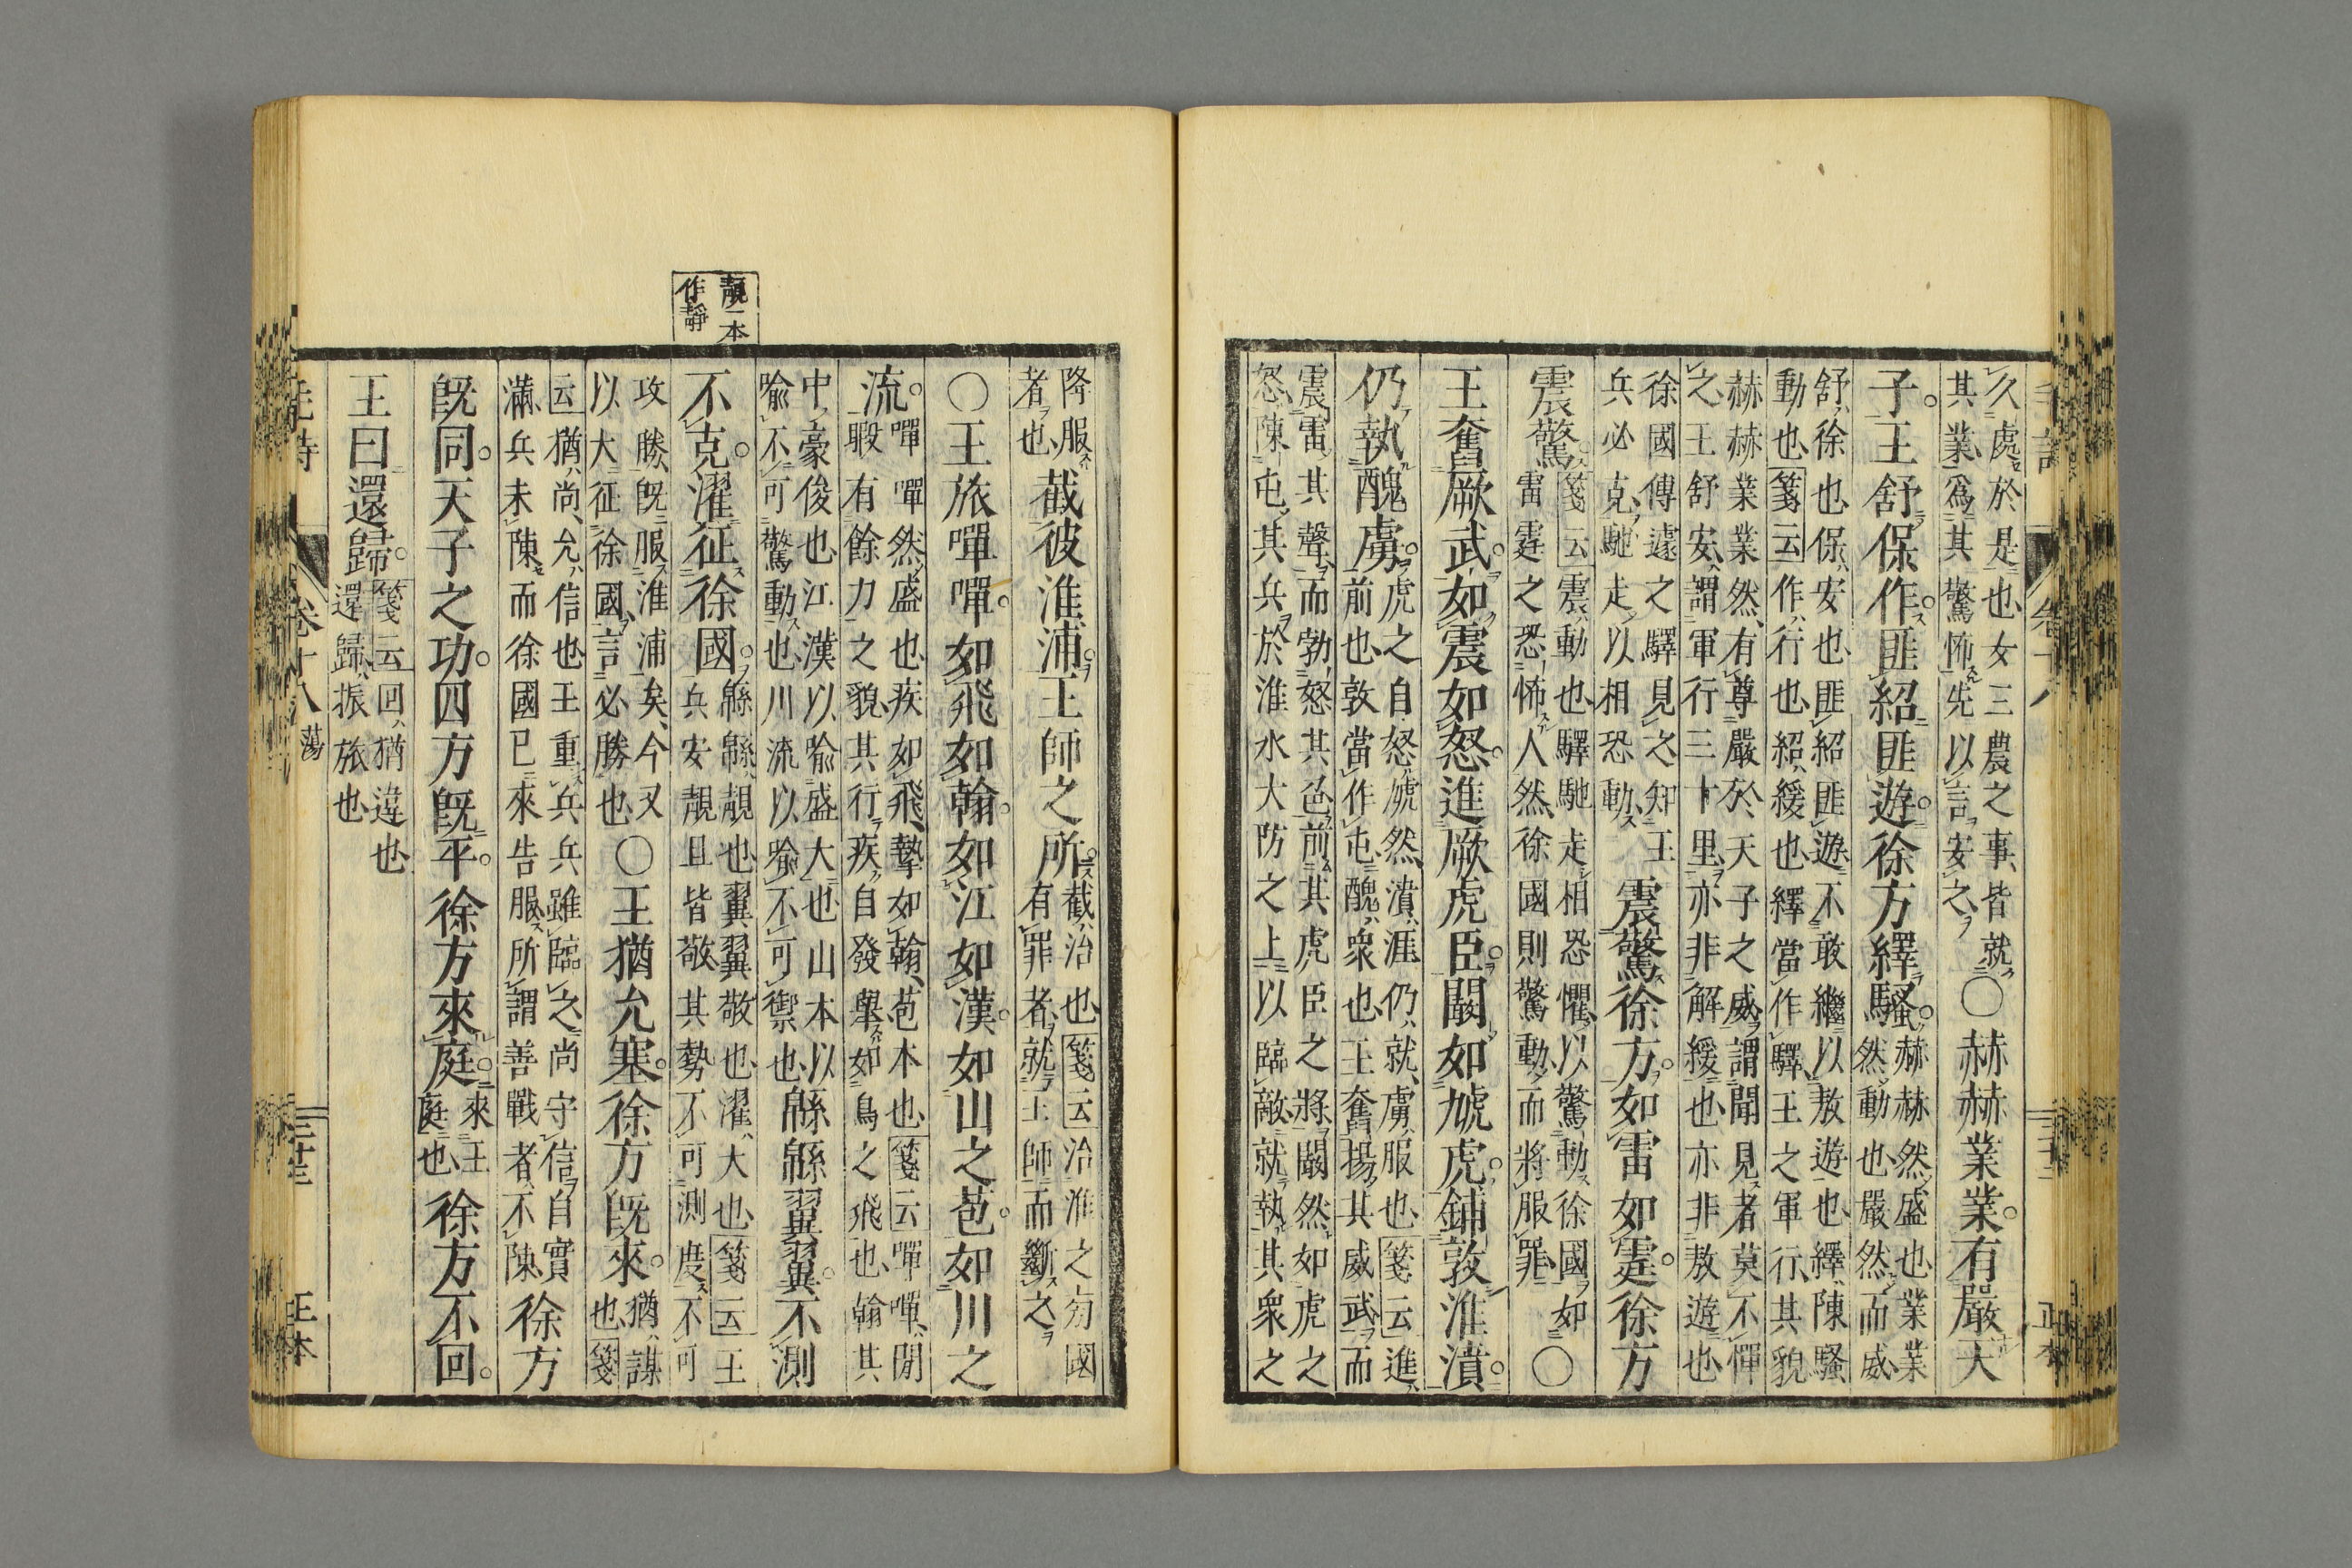 毛詩
卷十八
正本
久處於是也女三農之事皆就
其業爲其驚怖先以言安之
○赫赫業業有嚴天
子王舒保作匪紹匪遊徐方繹騷
赫赫然盛也業業
然動也嚴然而威
舒徐也保安也匪紹匪遊不敢繼以敖遊也繹陳騷
動也箋云作行也紹緩也繹當作驛王之軍行其貌
赫赫業業然有尊嚴於天子之威謂聞見者莫不憚
之王舒安謂軍行三十里亦非解緩也亦非敖遊也
徐國傳遽之驛見之知王
兵必克馳走以相恐動
震驚徐方如雷如霆徐方
震驚
箋云震動也驛馳走相恐懼以驚動徐國如
雷霆之恐怖人然徐國則驚動而將服罪
○
王奮厥武如震如怒進厥虎臣闞如虓虎鋪敦淮濆
仍執醜虜
虎之自怒虓然濆涯仍就虜服也箋云進
前也敦當作屯醜衆也王奮揚其威武而
震雷其聲而勃怒其色前其虎臣之將闞然如虎之
怒陳屯其兵於淮水大防之上以臨敵就執其衆之
降服
者也
截彼淮浦王師之所
截治也箋云治淮之旁國
有罪者就王師而斷之
○王旅嘽嘽如飛如翰如江如漢如山之苞如川之
流
嘽嘽然盛也疾如飛摯如翰苞本也箋云嘽嘽閒
暇有餘力之貌其行疾自發舉如鳥之飛也翰其
中豪俊也江漢以喻盛大也山本以
喻不可驚動也川流以喻不可禦也
緜緜翼翼不測
不克濯征徐國
緜緜靚也翼翼敬也濯大也箋云王
兵安靚且皆敬其勢不可測度不可
靚一本
作靜
攻勝旣服淮浦矣今又
以大征徐國言必勝也
○王猶允塞徐方旣來
猶謀
也箋
云猶尚允信也王重兵兵雖臨之尚守信自實
滿兵未陳而徐國已來告服所謂善戰者不陳
徐方
旣同天子之功四方旣平徐方來庭
來王
庭也
徐方不回
王曰還歸
箋云回猶違也
還歸振旅也
毛詩
卷十八
蕩
三十三
正本